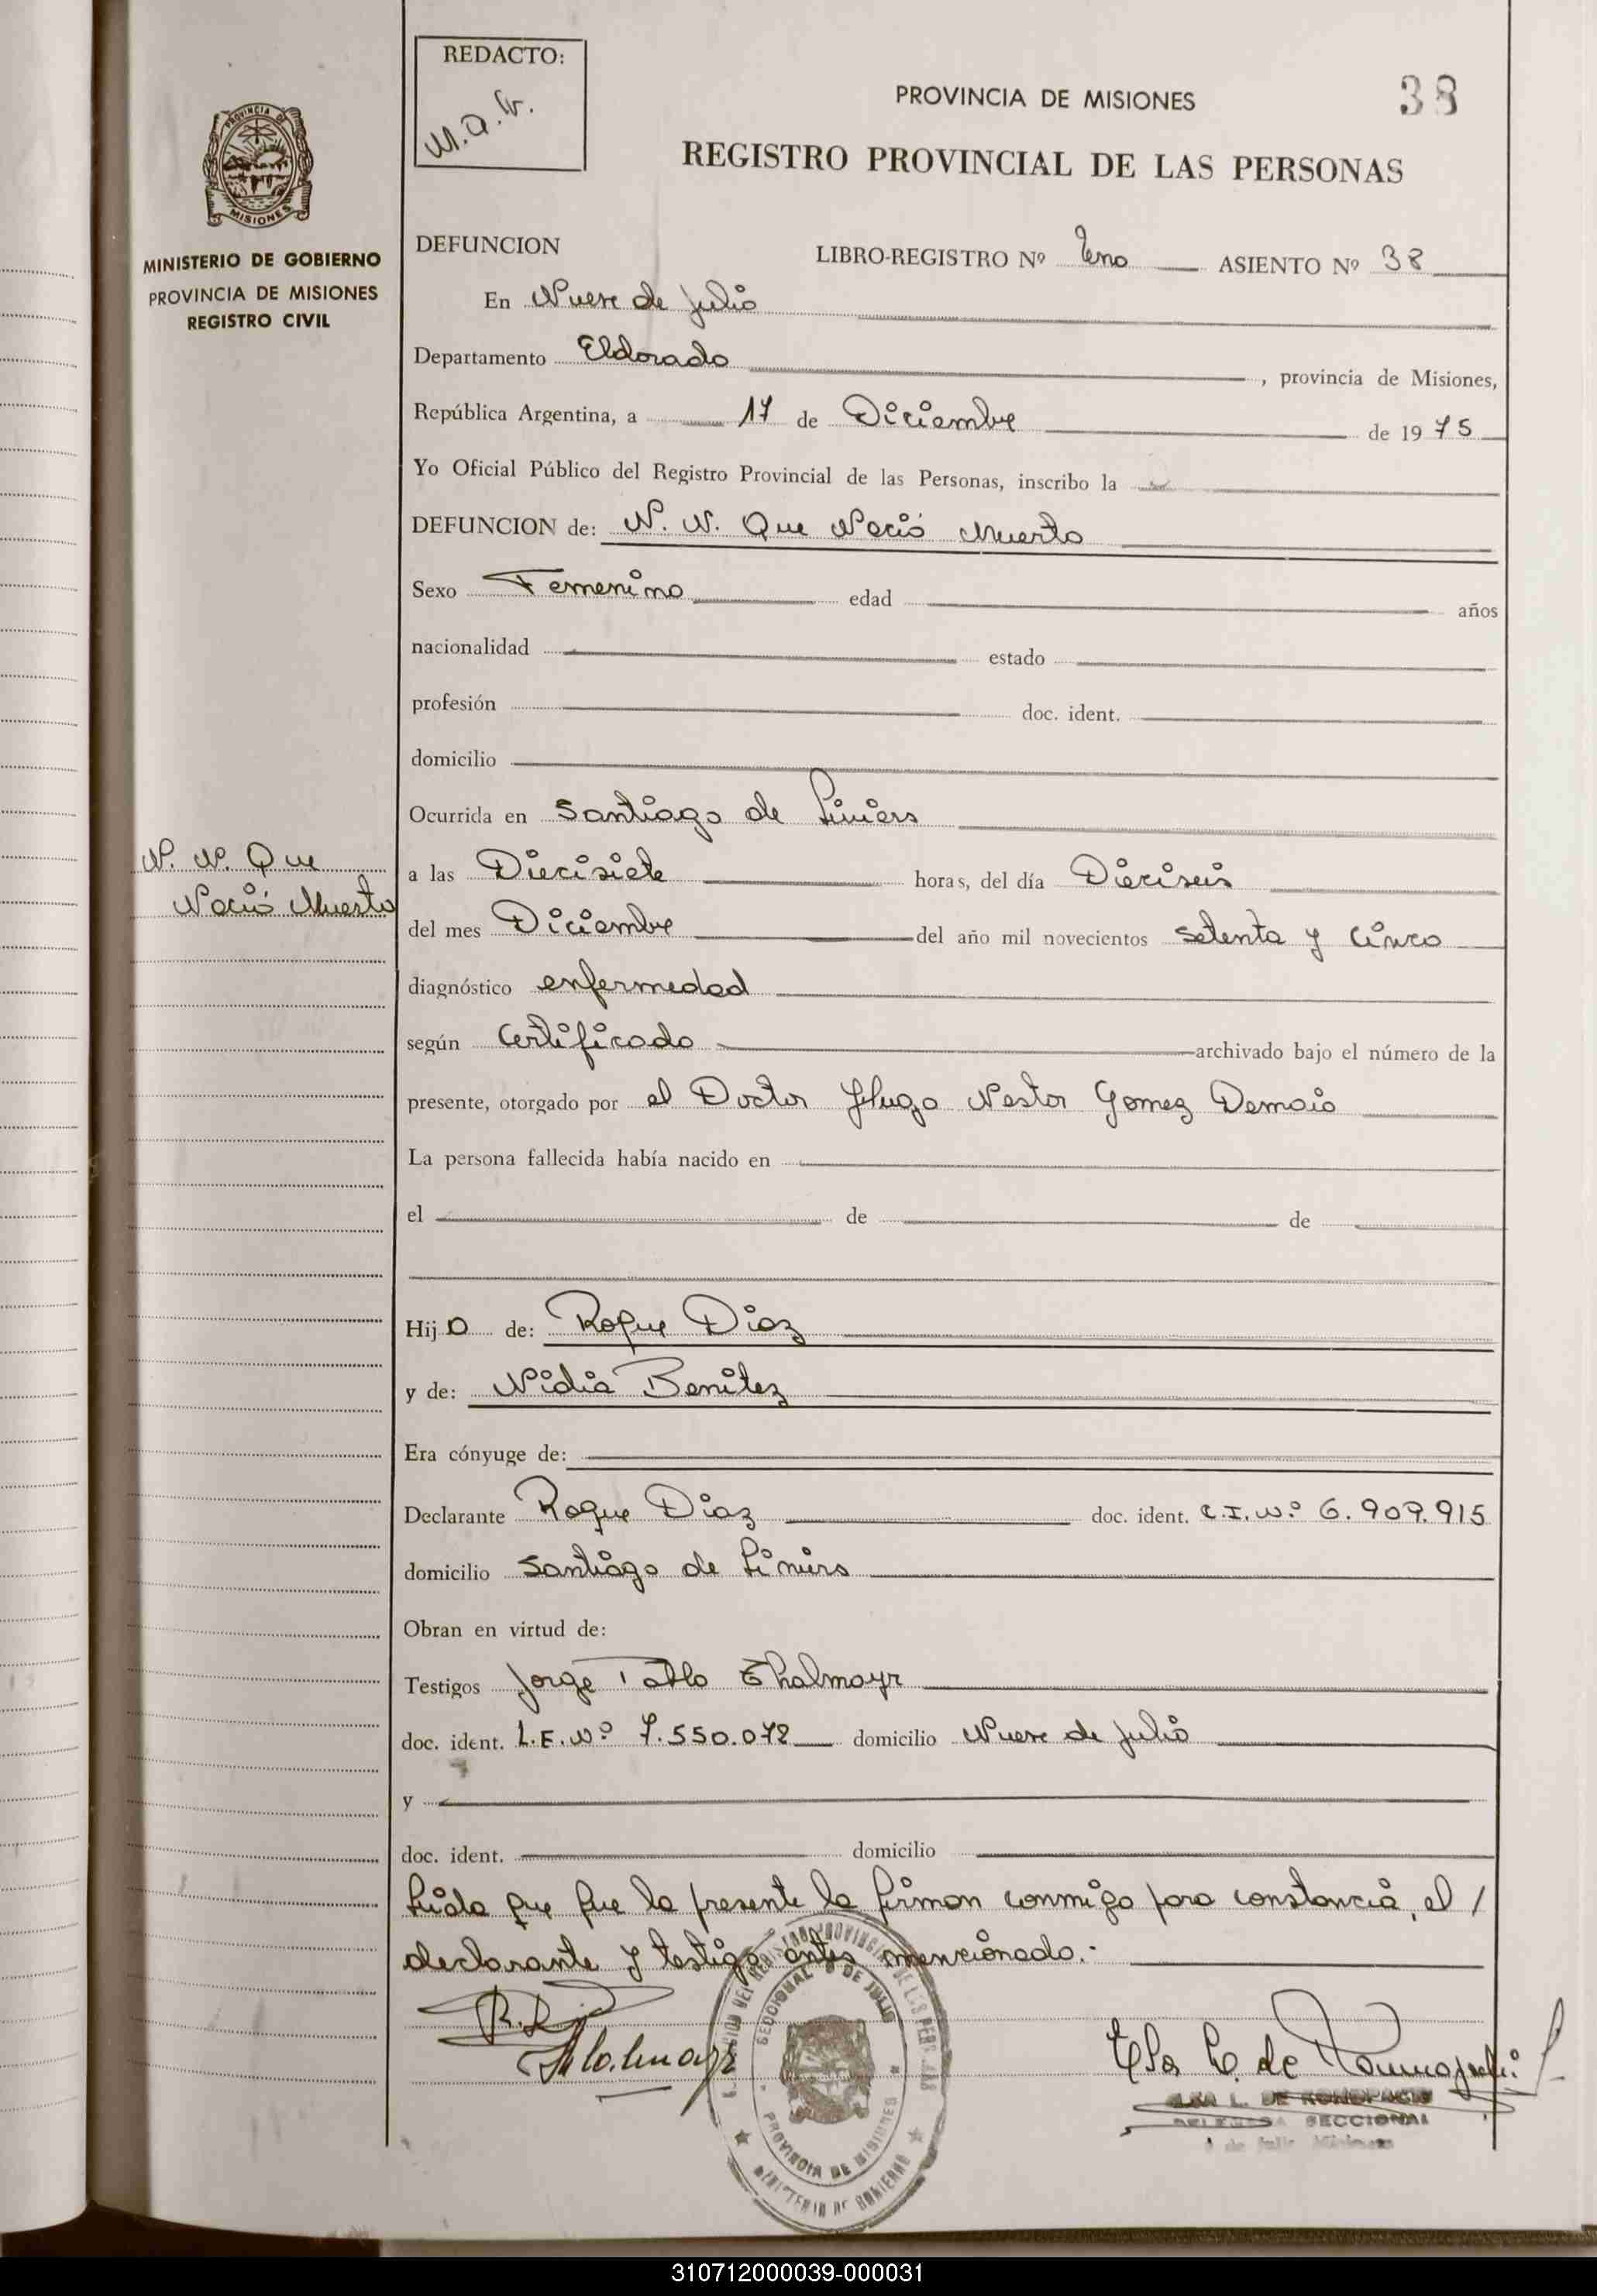 REDACTO:
PROVINCIA DE MISIONES
38
REGISTRO PROVINCIAL DE LAS PERSONAS
PROVINCIA DE
MISIONES
MINISTERIO DE GOBIERNO
PROVINCIA DE MISIONES
REGISTRO CIVIL
DEFUNCION LIBRO-REGISTRO Nº Uno ASIENTO Nº 38
En Nueve de Julio
Departamento Eldorado , provincia de Misiones,
República Argentina, a 17 de Diciembre de 1975
Yo Oficial Público del Registro Provincial de las Personas, inscribo la
DEFUNCION de: N. N. Que Nació Muerto
Sexo Femenino edad años
nacionalidad estado
profesión doc. ident.
domicilio
Ocurrida en Santiago de Liniers
N. N. Que
Nació Muerto
a las Diecisiete horas, del día Dieciseis
del mes Diciembre del año mil novecientos setenta y cinco
diagnóstico enfermedad
según Certificado archivado bajo el número de la
presente, otorgado por el Doctor Hugo Nestor Gomez Demaio
La persona fallecida había nacido en
el de de
Hijo de: Roque Diaz
y de: Nidia Benitez
Era cónyuge de:
Declarante Roque Diaz doc. ident. C.I. Nº 6.909.915
domicilio Santiago de Liniers
Obran en virtud de:
Testigos Jorge Pablo Thalmayr
doc. ident. L.E. Nº 7.550.072 domicilio Nueve de Julio
y
doc. ident. domicilio
Leida que fue la presente la firman conmigo para constancia, el /
declarante y testigo antes mencionado.-
R. D
Thalmayr
SECCIONAL 9 DE JULIO
PROVINCIA DE MISIONES
MINISTERIO DE GOBIERNO
L. DE KONOPACKI
DELEGADA SECCIONAL
310712000039-000031